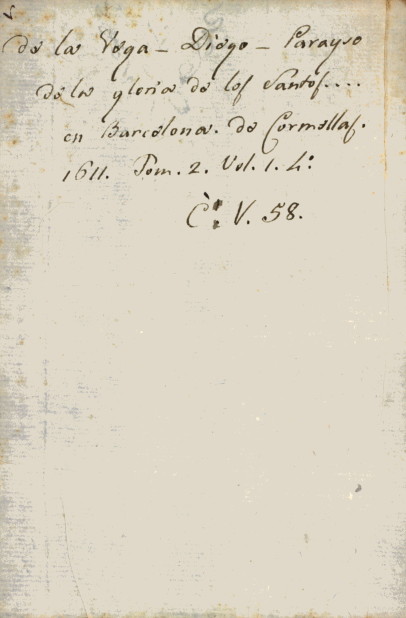 de la Vega - Diego - Parayso
de la gloria de los Santos....
en Barcelona. de Cormellas.
1611. Tom. 2. Vol. 1. 4:
C: V. 58.